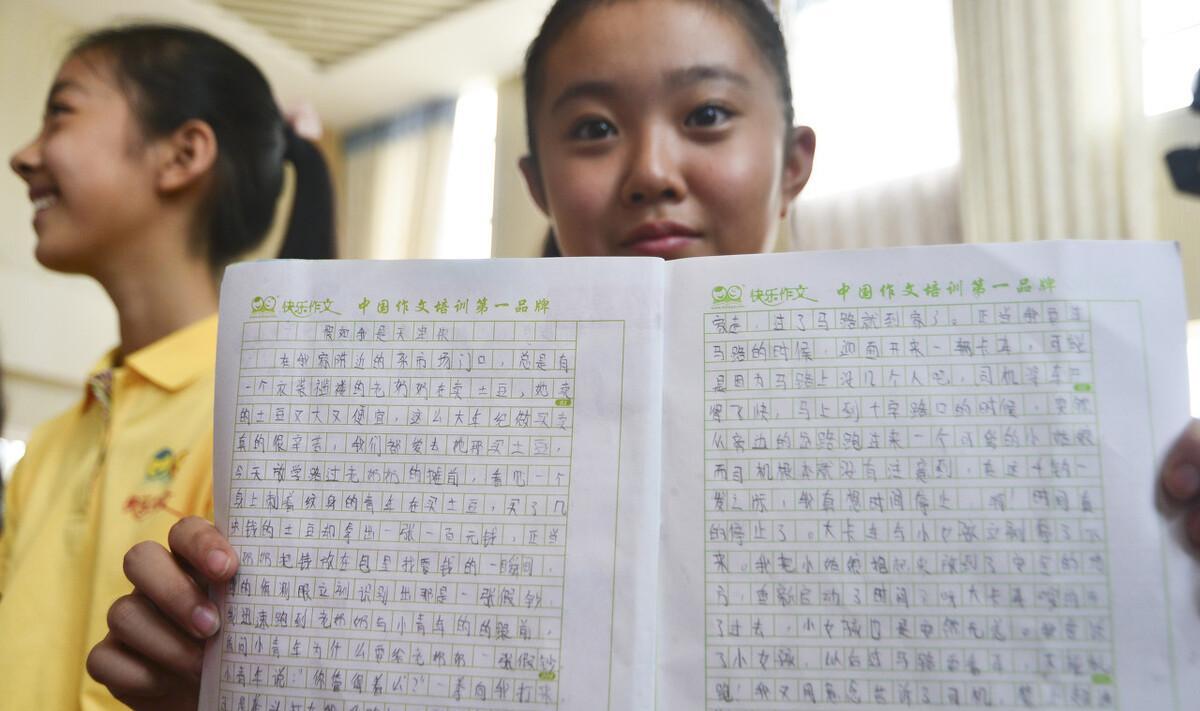 快乐作文 中国作文培训第一品牌
假如我是天
在我家附近的菜市场门口，总是有
一个衣装褴褛的老奶奶在卖土豆，她卖
的土豆又大又便宜，这么大年纪做买卖
真的很辛苦，我们都爱去她那买土豆，
今天放学路过老奶奶的摊前，看见一个
身上刺着纹身的青年在买土豆，买了几
块钱的土豆却拿出一张一百元钱，正当
奶奶把钱放在包里找零钱的一瞬间，
我的侦测眼立刻识别出那是一张假钞，
我迅速跑到老奶奶与小青年的的跟前，
我问小青年为什么要给老奶奶一张假钞
小青年说：“你管得着么？”一拳向我打来
快乐作文 中国作文培训第一品牌
家走，过了马路就到家了。正当我要过
马路的时候，迎面开来一辆卡车，可能
是因为马路上没几个人吧，司机将车开
得很快，马上到十字路口的时候，突然
从旁边的岔路跑过来一个可爱的小姑娘
而司机根本就没有注意到，在这千钧一
发之际，我真想时间停止，“停！”时间真
的停止了。大卡车与小女孩立刻停了下
来。我把小姑娘抱起来放到了安全的地
方，重新启动了时间，大卡车
了过去，小女孩也是安然无恙。我告诉
了小女孩，以后过马路要看车，不能乱
跑！我又用意念告诉了司机，